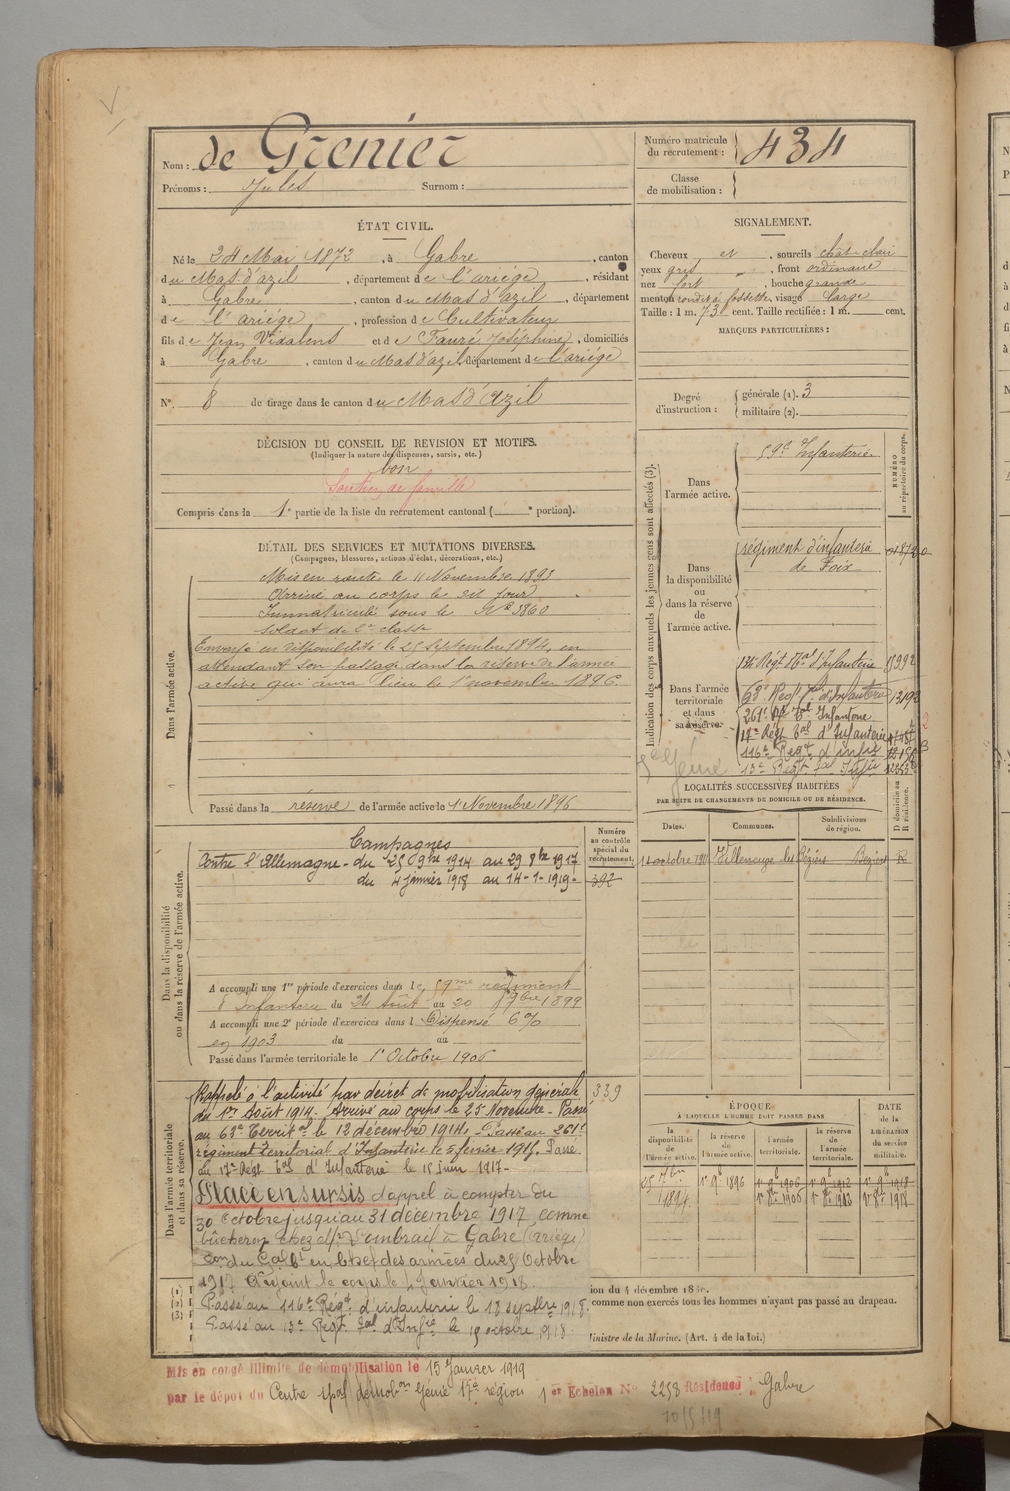 Nom : de Grenier
Prénoms : Jules Surnom :
Numéro matricule du recrutement : 434
Classe de mobilisation :
ÉTAT CIVIL.
Né le 24 Mai 1872, à Gabre, canton
du Mas d'azil, département de l'ariége, résidant
à Gabre, canton du Mas d'azil, département
de l'ariége, profession de Cultivateur
fils de Jean Vidalens et de Fauré Joséphine, domiciliés
à Gabre, canton du Mas d'azil, département de l'ariége
N°. 8 de tirage dans le canton du Mas d'Azil
SIGNALEMENT.
Cheveux et, sourcils chat-clair
yeux gris, front ordinaire
nez fort, bouche grande
menton rond à fossette, visage large
Taille : 1 m. 73 cent. Taille rectifiée : 1 m. cent.
MARQUES PARTICULIÈRES :
Degré d'instruction : générale (1). 3
militaire (2).
DÉCISION DU CONSEIL DE REVISION ET MOTIFS.
(Indiquer la nature des dispenses, sursis, etc.)
bon
Soutien de famille
Compris dans la 1e partie de la liste du recrutement cantonal ( e portion).
DÉTAIL DES SERVICES ET MUTATIONS DIVERSES.
(Campagnes, blessures, actions d'éclat, décorations, etc.)
Dans l'armée active.
Mis en route le 11 Novembre 1893
Arrivé au corps le dit jour
Immatriculé sous le N° 3860
soldat de 2e classe
Envoyé en disponibilité le 25 Septembre 1894, en
attendant son passage dans la réserve de l'armée
active qui aura lieu le 1er novembre 1896.
Passé dans la réserve de l'armée active le 1er Novembre 1896
Dans la disponibilité ou dans la réserve de l'armée active.
Numéro au contrôle spécial du recrutement.
Campagnes
Contre l'Allemagne - du 25 9bre 1914 au 29 8bre 1917
du 4 janvier 1918 au 14-1-1919-
392
A accompli une 1re période d'exercices dans le 59me régiment
d'Infanterie du 24 Août au 20 7bre 1899
A accompli une 2e période d'exercices dans l Dispensé 6%
en 1903 du au
Passé dans l'armée territoriale le 1er Octobre 1906
Dans l'armée territoriale et dans sa réserve.
Rappelé à l'activité par décret de mobilisation générale
du 1er Août 1914. Arrivé au corps le 25 Novembre - Passé
au 63e Territal le 12 décembre 1914. Passé au 261e
régiment Territorial d'Infanterie le 5 février 1915. Passé
au 17e Régt Tal d'Infanterie le 15 juin 1917-
339
Placé en sursis d'appel à compter du
30 octobre jusqu'au 31 décembre 1917, comme
bûcheron chez Mr Dombrail à Gabre (Ariège)
on du Gal Ct en Chef des armées du 25 Octobre
1917. A rejoint le corps le 4 Janvier 1918.
Passé au 116e Régt d'infanterie le 18 septbre 1918.
Passé au 13e Regt Tal d'Infie le 19 octobre 1918.
(1)
(2)
(3)
Mis en congé illimité de démobilisation le 15 Janvier 1919
par le dépôt du Centre spal démobon Génie 17e région 1er Echelon N° 2258 Résidence : Gabre
10/5/19
Indication des corps auxquels les jeunes gens sont affectés (3).
NUMÉRO au répertoire du corps.
Dans l'armée active.
59e Infanterie
Dans la disponibilité ou dans la réserve de l'armée active.
régiment d'infanterie
de Foix
Dans l'armée territoriale et dans sa réserve.
134 Régt Tal d'Infanterie
63e Regt Tal d'Infanterie 13192
261e Rt Tal Infanterie
17e Régt Tal d'Infanterie
116e Regt d'infie
13e Regt Tal Infie
Génie
LOCALITÉS SUCCESSIVES HABITÉES
PAR SUITE DE CHANGEMENTS DE DOMICILE OU DE RÉSIDENCE.
Dates. Communes. Subdivisions de région. D domicile ou R résidence.
Villeneuve les Béziers Beziers R
ÉPOQUE
À LAQUELLE L'HOMME DOIT PASSER DANS
DATE de la LIBÉRATION du service militaire.
la disponibilité de l'armée active. la réserve de l'armée active. l'armée territoriale. la réserve de l'armée territoriale.
25 7bre 1894 1er 9bre 1896 1er 9bre 1906 1er 9bre 1912 1er 9bre 1918
1er 8bre 1906 1er 8bre 1913 1er 8bre 1918
comme non exercés tous les hommes n'ayant pas passé au drapeau.
inistre de la Marine. (Art. 4 de la loi.)